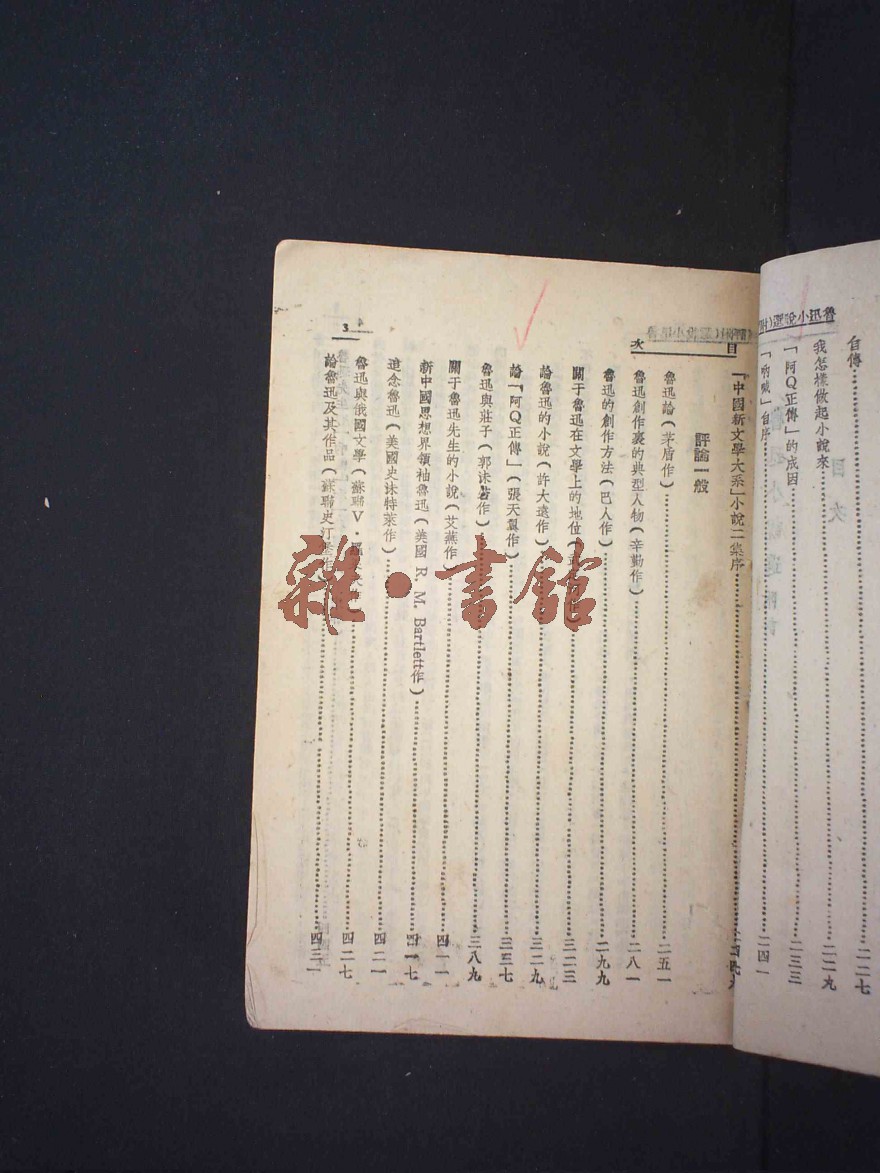 魯迅小說選(附
自傳…………二二七
我怎樣做起小說來…………二二九
「阿Q正傳」的成因…………二三三
「吶喊」自序…………二四一
目次
「中國新文學大系」小說二集序…………
評論一般
魯迅論(茅盾作)…………二五一
魯迅創作裏的典型人物(辛勤作)…………二八一
魯迅的創作方法(巴人作)…………二九九
關于魯迅在文學上的地位(…………三二三
論魯迅的小說(許大遠作)…………三二九
論「阿Q正傳」(張天翼作)…………三三七
魯迅與莊子(郭沫若作)…………三八九
關于魯迅先生的小說(艾蕪作)…………四一一
新中國思想界領袖魯迅(美國 R. M. Bartlett作)…………四一七
追念魯迅(美國史沫特萊作)…………四二一
魯迅與俄國文學(蘇聯V·…………四二七
論魯迅及其作品(蘇聯史…………四三一
3
雜·書館